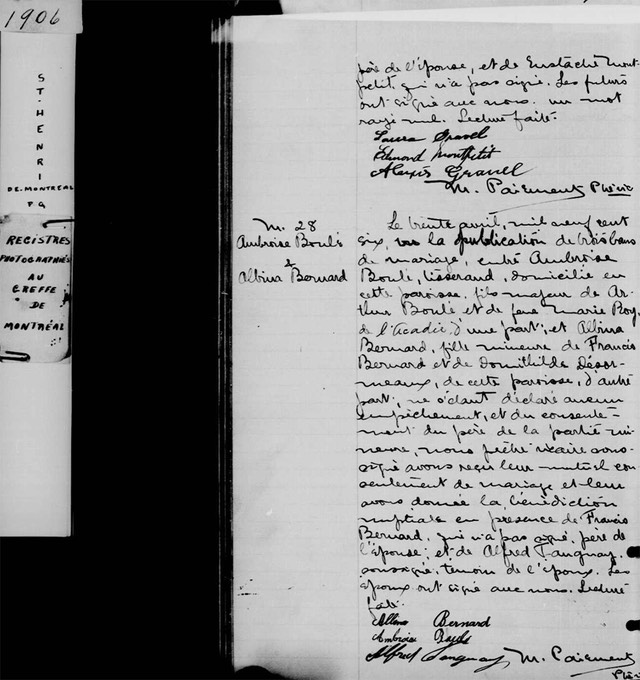 1906
ST-HENRI
DE-MONTRÉAL
P Q
REGISTRES
PHOTOGRAPHIÉS
AU
GREFFE
DE
MONTRÉAL
père de l'épouse, et de Eustache Mont-
petit qui n'a pas signé. Les futurs
ont signé avec nous. un mot
rayé nul. Lecture faite.
Laura Gravel
Edmond Montpetit
Alexis Gravel
M. Paiement Ptre vic
M. 28
Ambroise Boulé
&
Albina Bernard
Le trente avril, mil neuf cent
six, vu la publication de trois bans
de mariage, entre Ambroise
Boulé, tisserand, domicilié en
cette paroisse, fils majeur de Ar-
thur Boulé et de feue Marie Roy,
de l'Acadie, d'une part; et Albina
Bernard, fille mineure de Francis
Bernard et de Domithilde Désor-
meaux, de cette paroisse, d'autre
part; ne s'étant déclaré aucun
empêchement, et du consente-
ment du père de la partie mi-
neure, nous prêtre vicaire sous-
signé avons reçu leur mutuel con
sentement de mariage et leur
avons donnée la bénédiction
nuptiale en présence de Francis
Bernard, qui n'a pas signé, père de
l'épouse; et de Alfred Tanguay,
soussigné, témoin de l'époux. Les
époux ont signé avec nous. Lecture
faite.
Albina Bernard
Ambroise
Alfred Tanguay M. Paiement
Ptre